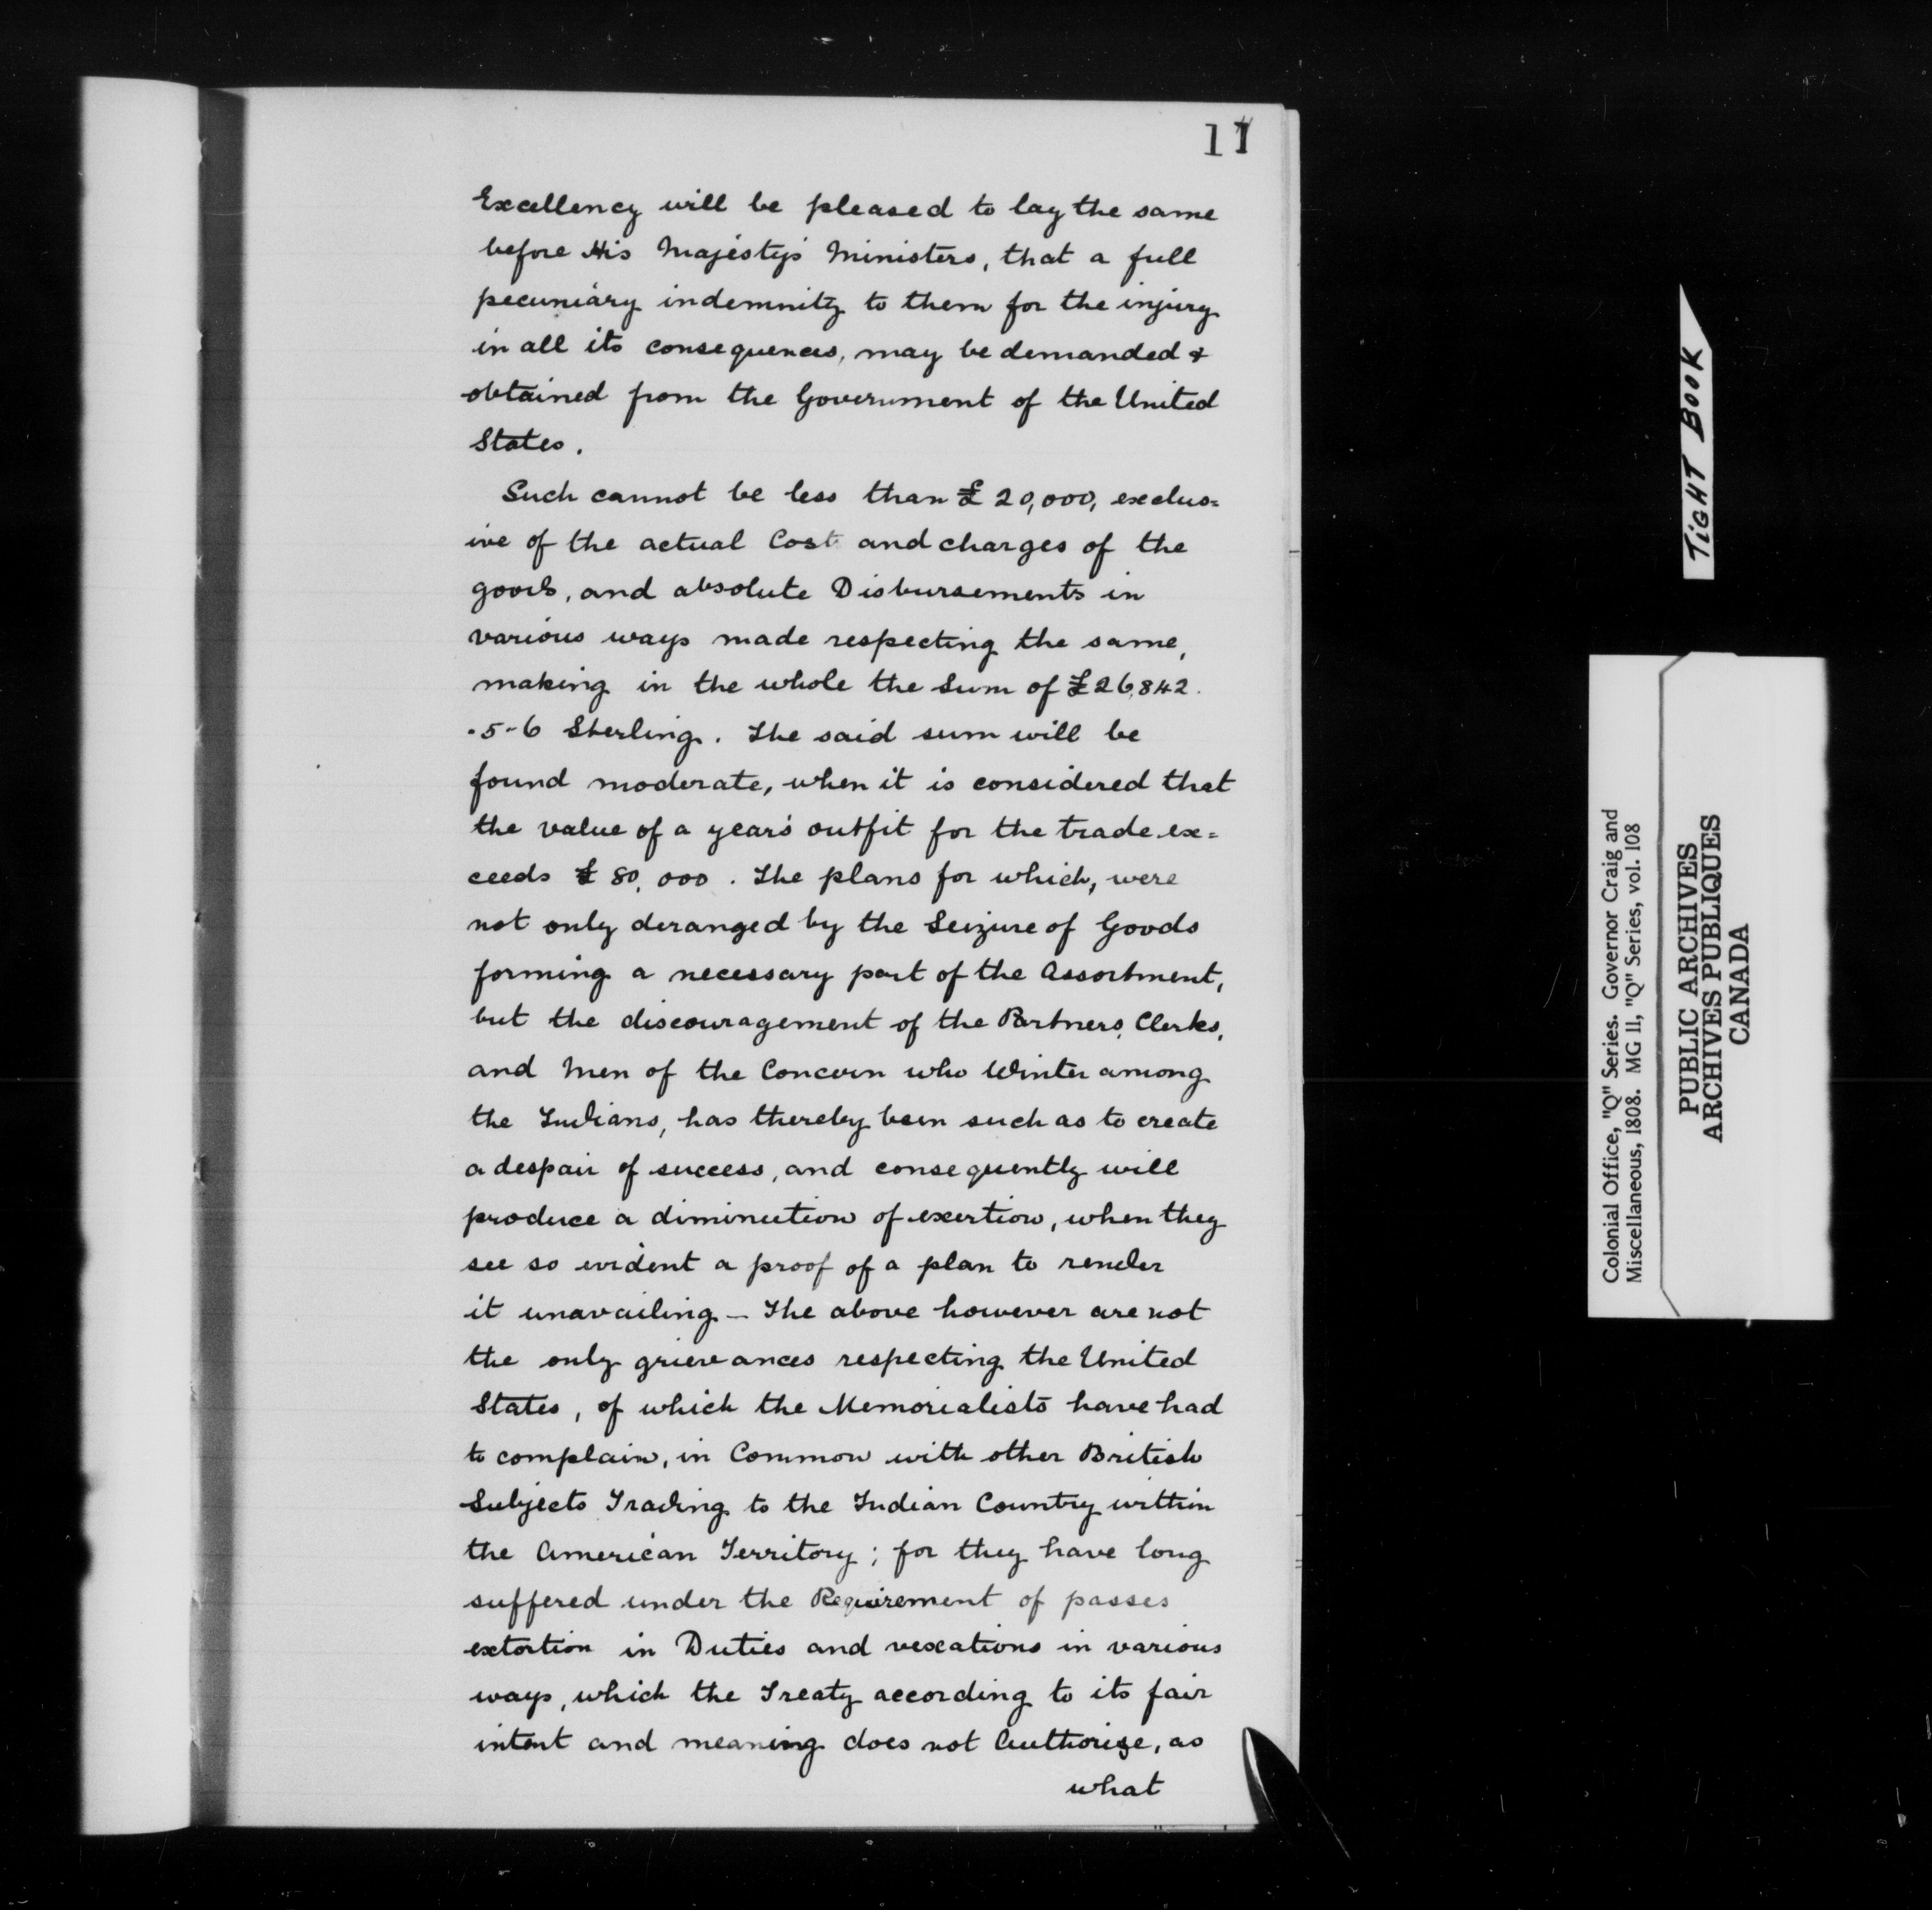 11
Excellency will be pleased to lay the same
before His Majesty's Ministers, that a full
pecuniary indemnity to them for the injury
in all its consequences, may be demanded &
obtained from the Government of the United
States.
Such cannot be less than £20,000, exclus=
ive of the actual Cost and charges of the
goods, and absolute Disbursements in
various ways made respecting the same,
making in the whole the Sum of £26,842.
.5-6 Sterling. The said sum will be
found moderate, when it is considered that
the value of a year's outfit for the trade ex=
ceeds £80,000. The plans for which, were
not only deranged by the Seizure of Goods
forming a necessary part of the Assortment,
but the discouragement of the Partners, Clerks,
and Men of the Concern who Winter among
the Indians, has thereby been such as to create
a despair of success, and consequently will
produce a diminution of exertion, when they
see so evident a proof of a plan to render
it unavailing - The above however are not
the only grievances respecting the United
States, of which the Memorialists have had
to complain, in Common with other British
Subjects Trading to the Indian Country within
the American Territory; for they have long
suffered under the Requirement of passes
extortion in Duties and vexations in various
ways, which the Treaty according to its fair
intent and meaning does not Authorize, as
what
TIGHT BOOK
Colonial Office, "Q" Series. Governor Craig and
Miscellaneous, 1808. MG 11, "Q" Series, vol. 108
PUBLIC ARCHIVES
ARCHIVES PUBLIQUES
CANADA